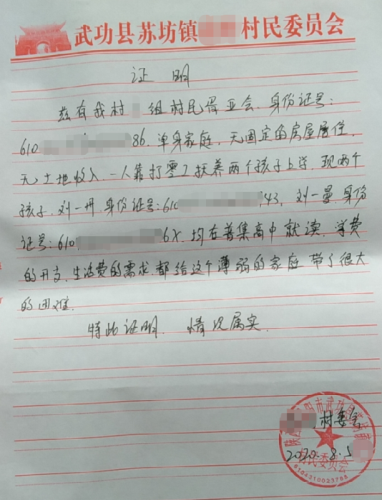 武功县苏坊镇 村民委员会
证 明
兹有我村 组村民 亚会,身份证号:
610 86. 单身家庭,无固定的房屋居住,
无土地收入,一人靠打零工扶养两个孩子上学,现两个
孩子,刘一 身份证号:610 43, 刘一 身份
证号:610 6X, 均在普集高中就读,学费
的开支,生活费的需求都给这个薄弱的家庭带了很大
的困难.
特此证明 情况属实.
村委会
2020.8.5
村民委员会